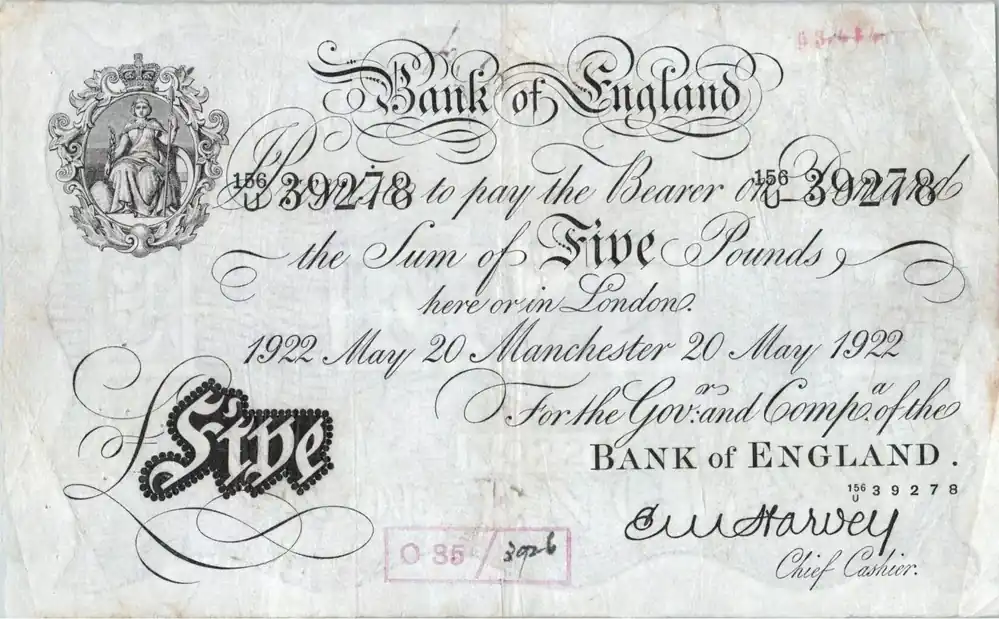 Bank of England
I Promise to pay the Bearer on Demand
156/U 39278 156/U 39278
the Sum of Five Pounds,
here or in London.
1922 May 20 Manchester 20 May 1922
For the Govr. and Compa. of the
BANK of ENGLAND.
156/U 39278
£ Five
C M Harvey
Chief Cashier.
O 85/3926